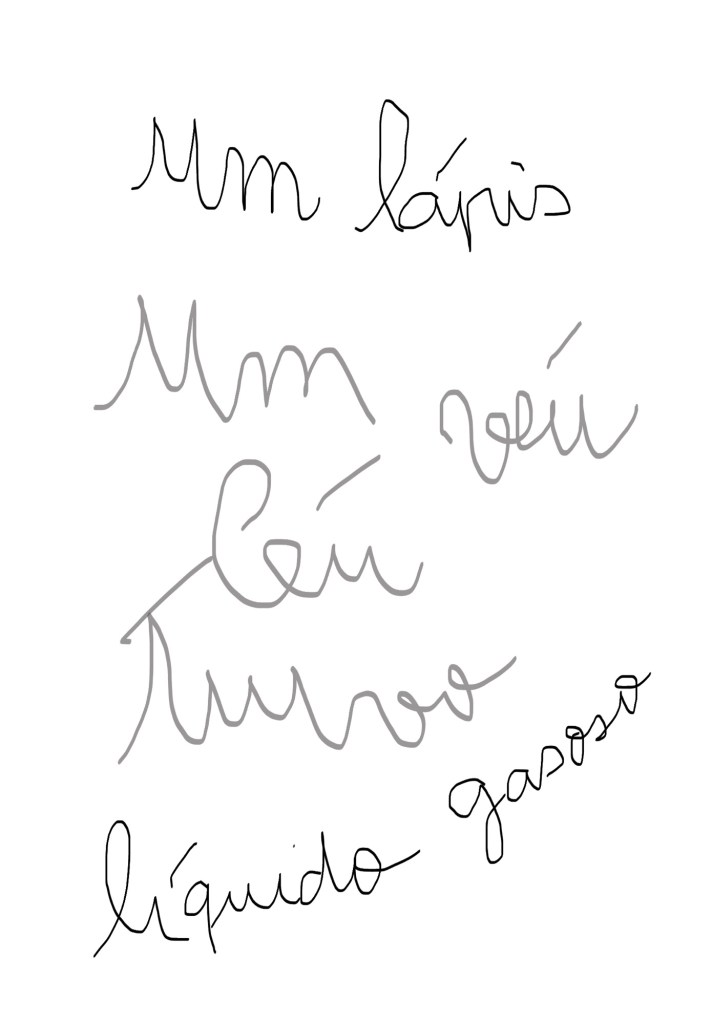 Um lápis
Um véu
Céu
Turvo
líquido gasoso